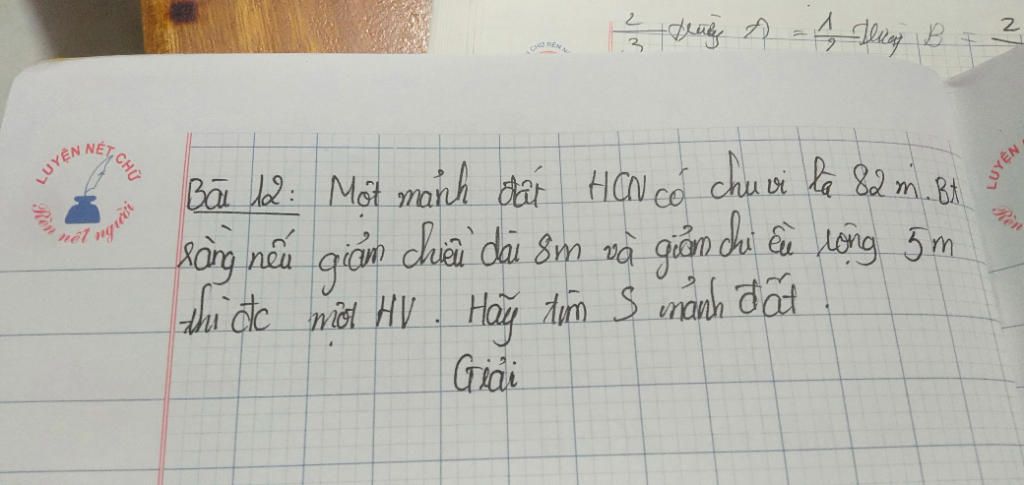 2/3 A = 1/2 B = 2
LUYỆN NÉT CHỮ
Rèn nết người
Bài 12: Một mảnh đất HCN có chu vi là 82 m. Bt
rằng nếu giảm chiều dài 8m và giảm chiều rộng 5m
thì đc một HV. Hãy tìm S mảnh đất.
Giải
LUYỆN
Rèn